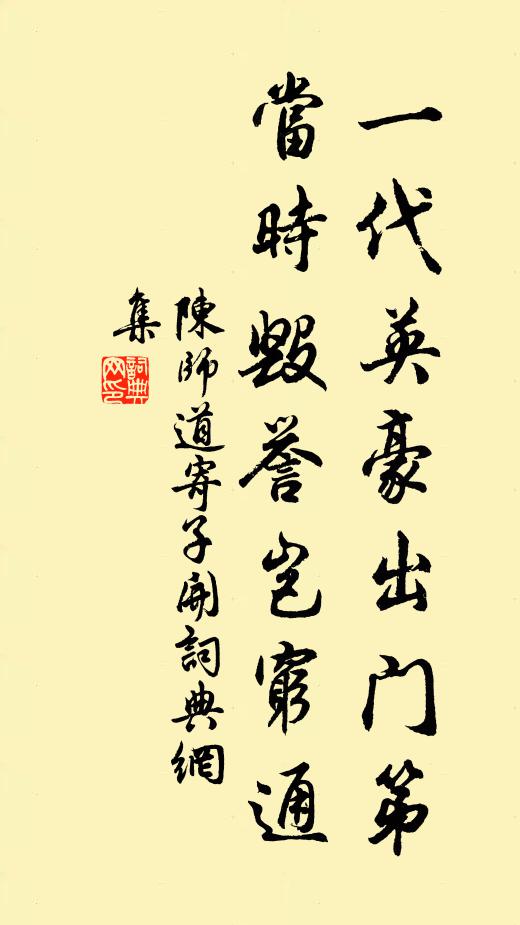 一代英豪出門第
當時毀譽豈窮通
陳師道寄子開詞典網
集
詞典
网印